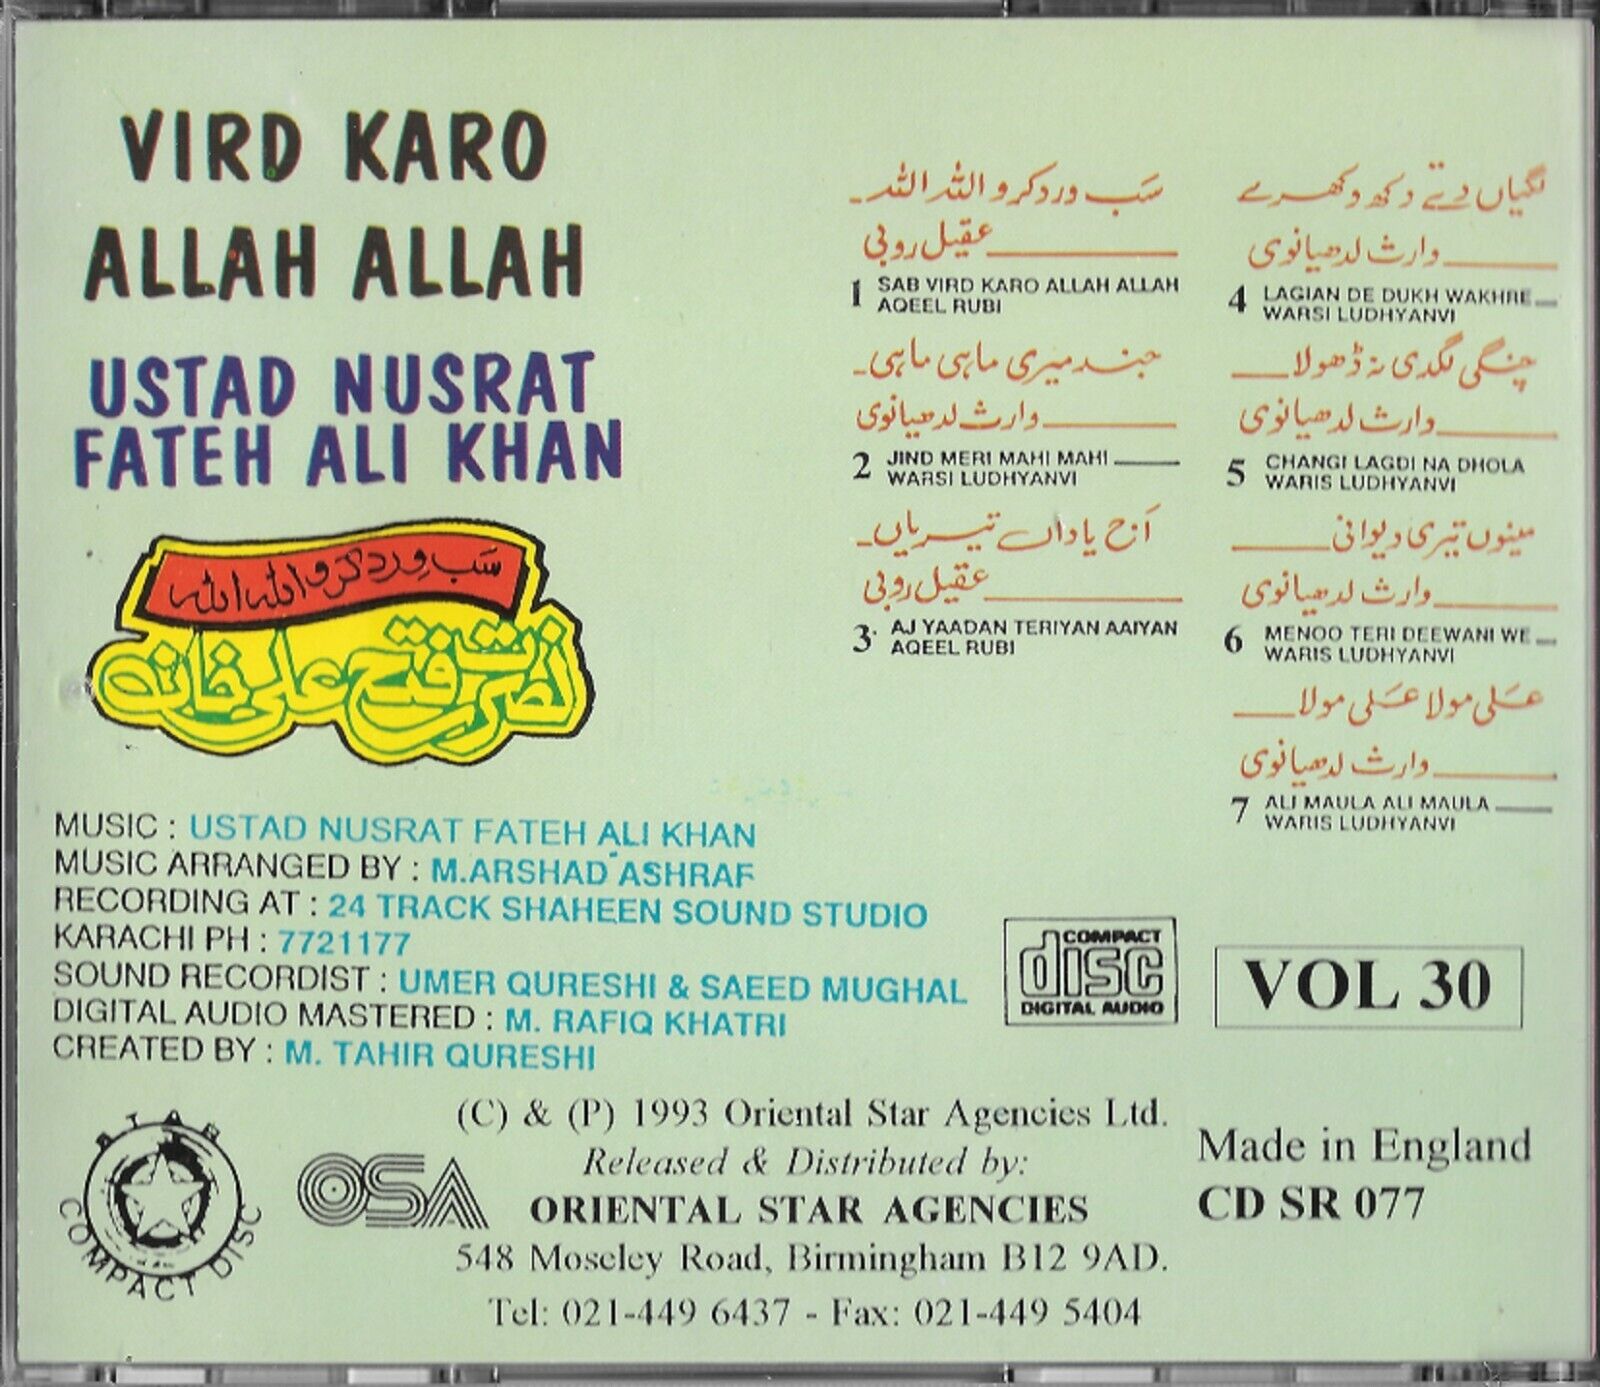 VIRD KARO
ALLAH ALLAH
USTAD NUSRAT
FATEH ALI KHAN
سب ورد کرو اللہ اللہ
نصرت فتح علی خان
سب ورد کرو اللہ اللہ
عقیل روبی
1 SAB VIRD KARO ALLAH ALLAH
AQEEL RUBI
جند میری ماہی ماہی
وارث لدھیانوی
2 JIND MERI MAHI MAHI
WARSI LUDHYANVI
آج یاداں تیریاں
عقیل روبی
3 AJ YAADAN TERIYAN AAIYAN
AQEEL RUBI
لگیاں دے دکھ وکھرے
وارث لدھیانوی
4 LAGIAN DE DUKH WAKHRE
WARSI LUDHYANVI
چنگی لگدی نہ ڈھولا
وارث لدھیانوی
5 CHANGI LAGDI NA DHOLA
WARIS LUDHYANVI
مینوں تیری دیوانی
وارث لدھیانوی
6 MENOO TERI DEEWANI WE
WARIS LUDHYANVI
علی مولا علی مولا
وارث لدھیانوی
7 ALI MAULA ALI MAULA
WARIS LUDHYANVI
MUSIC : USTAD NUSRAT FATEH ALI KHAN
MUSIC ARRANGED BY : M.ARSHAD ASHRAF
RECORDING AT : 24 TRACK SHAHEEN SOUND STUDIO
KARACHI PH : 7721177
SOUND RECORDIST : UMER QURESHI & SAEED MUGHAL
DIGITAL AUDIO MASTERED : M. RAFIQ KHATRI
CREATED BY : M. TAHIR QURESHI
COMPACT
disc
DIGITAL AUDIO
VOL 30
STAR
COMPACT DISC
OSA
(C) & (P) 1993 Oriental Star Agencies Ltd.
Released & Distributed by:
ORIENTAL STAR AGENCIES
548 Moseley Road, Birmingham B12 9AD.
Tel: 021-449 6437 - Fax: 021-449 5404
Made in England
CD SR 077